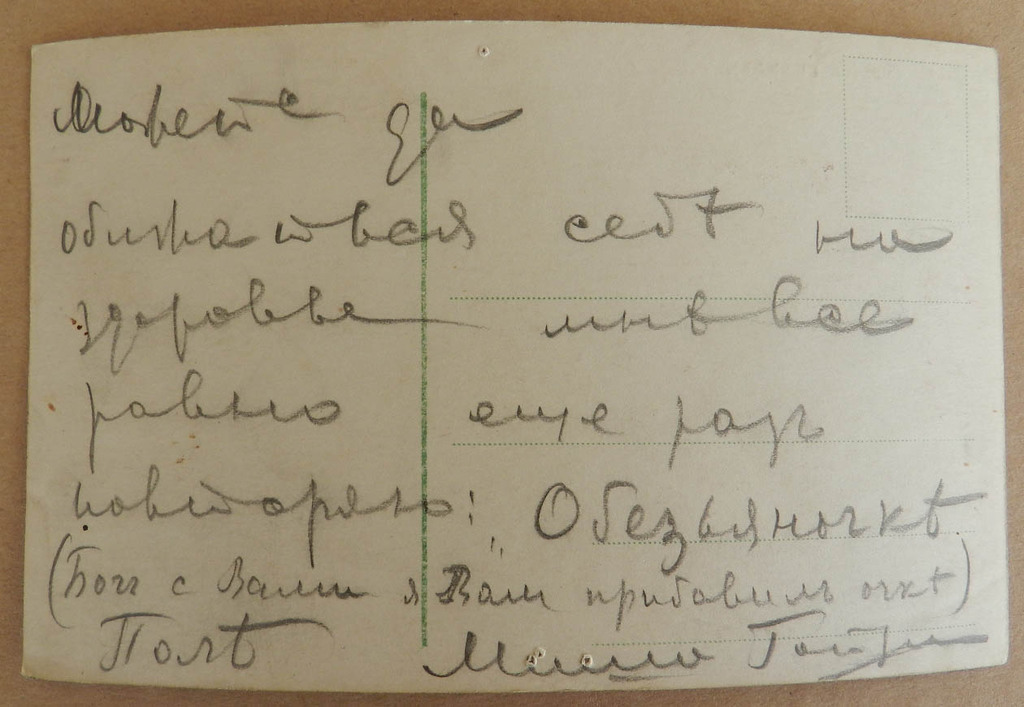 Можете
обижаться себѣ на
здоровье мнѣ все
равно еще разъ
повторяю: „Обезьяночкѣ
(Богъ с Вами я Вам прибавилъ очкѣ)
Полѣ